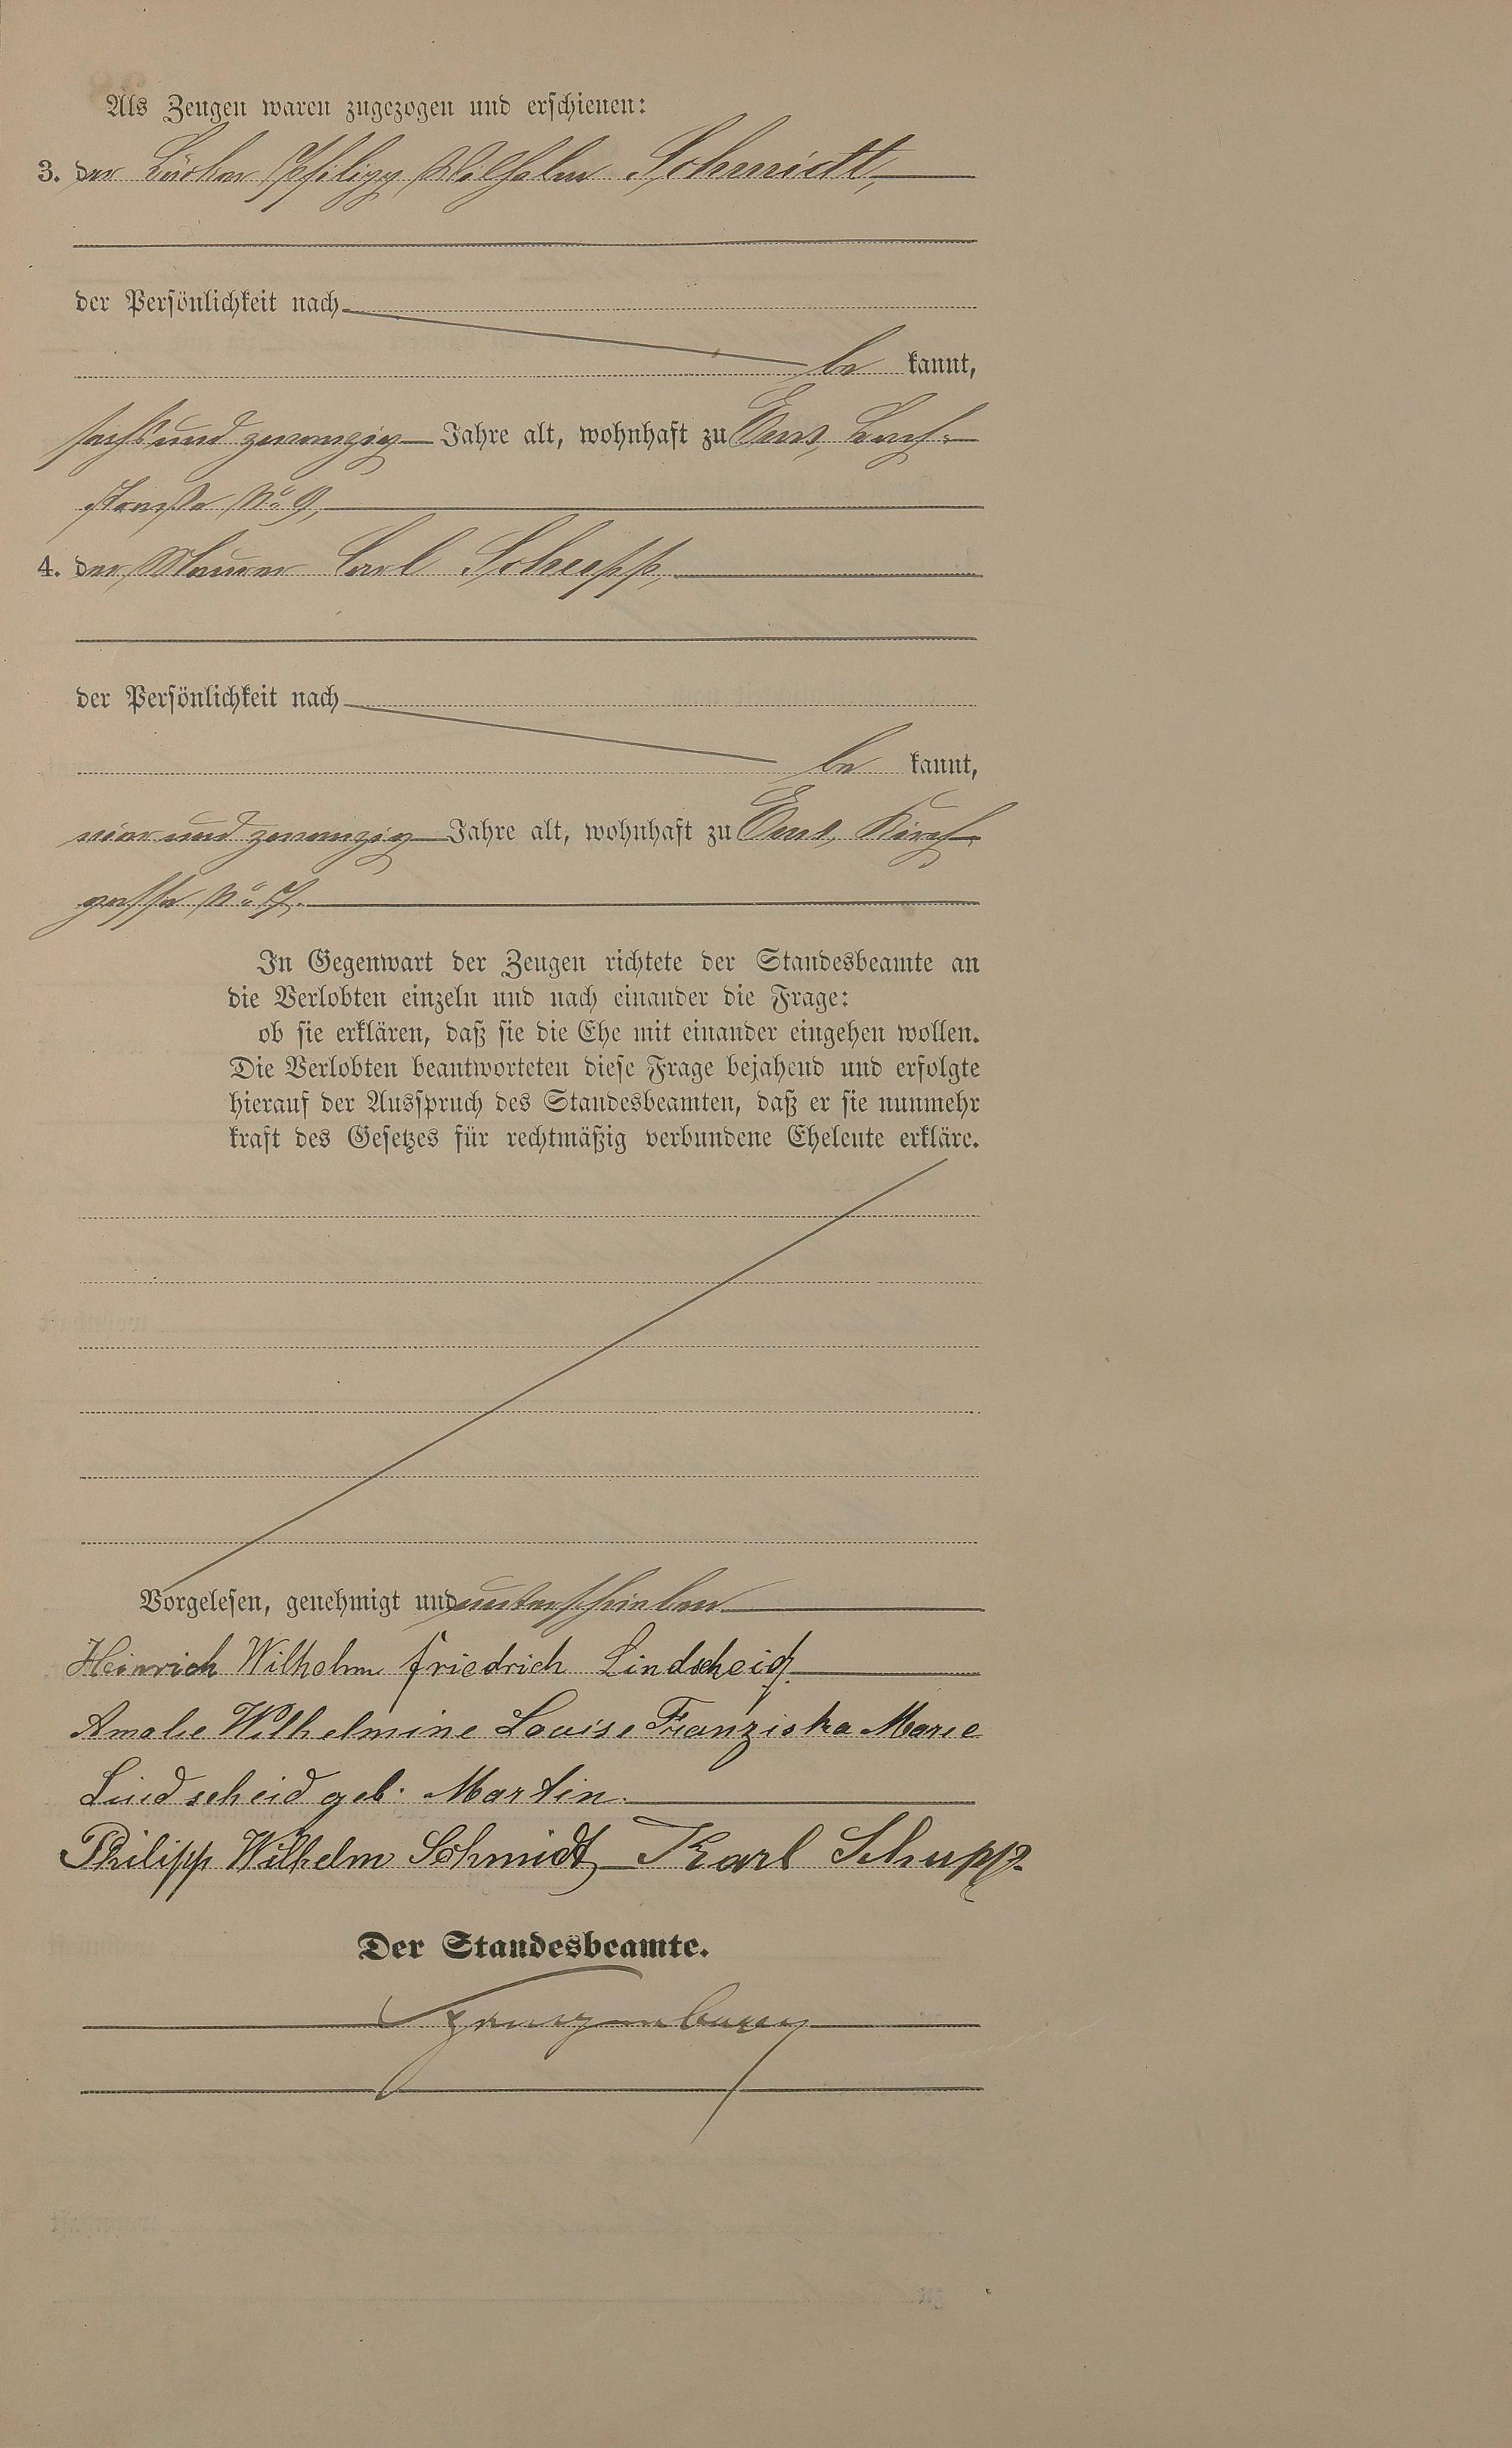 Als Zeugen waren zugezogen und erschienen:
3. der Philipp Wilhelm Schmidt,
der Persönlichkeit nach
be kannt,
sechs und zwanzig Jahre alt, wohnhaft zu Ems,
straße No 9,
4. der Maurer Carl Schupp,
der Persönlichkeit nach
be kannt,
vier und zwanzig Jahre alt, wohnhaft zu Ems, Kirch-
gasse No
In Gegenwart der Zeugen richtete der Standesbeamte an
die Verlobten einzeln und nach einander die Frage:
ob sie erklären, daß sie die Ehe mit einander eingehen wollen.
Die Verlobten beantworteten diese Frage bejahend und erfolgte
hierauf der Ausspruch des Standesbeamten, daß er sie nunmehr
kraft des Gesetzes für rechtmäßig verbundene Eheleute erkläre.
Vorgelesen, genehmigt und unterschrieben
Heinrich Wilhelm Friedrich Lindscheid.
Amalie Wilhelmine Louise Franziska Marie
Lindscheid geb. Martin.
Philipp Wilhelm Schmidt Karl Schupp.
Der Standesbeamte.